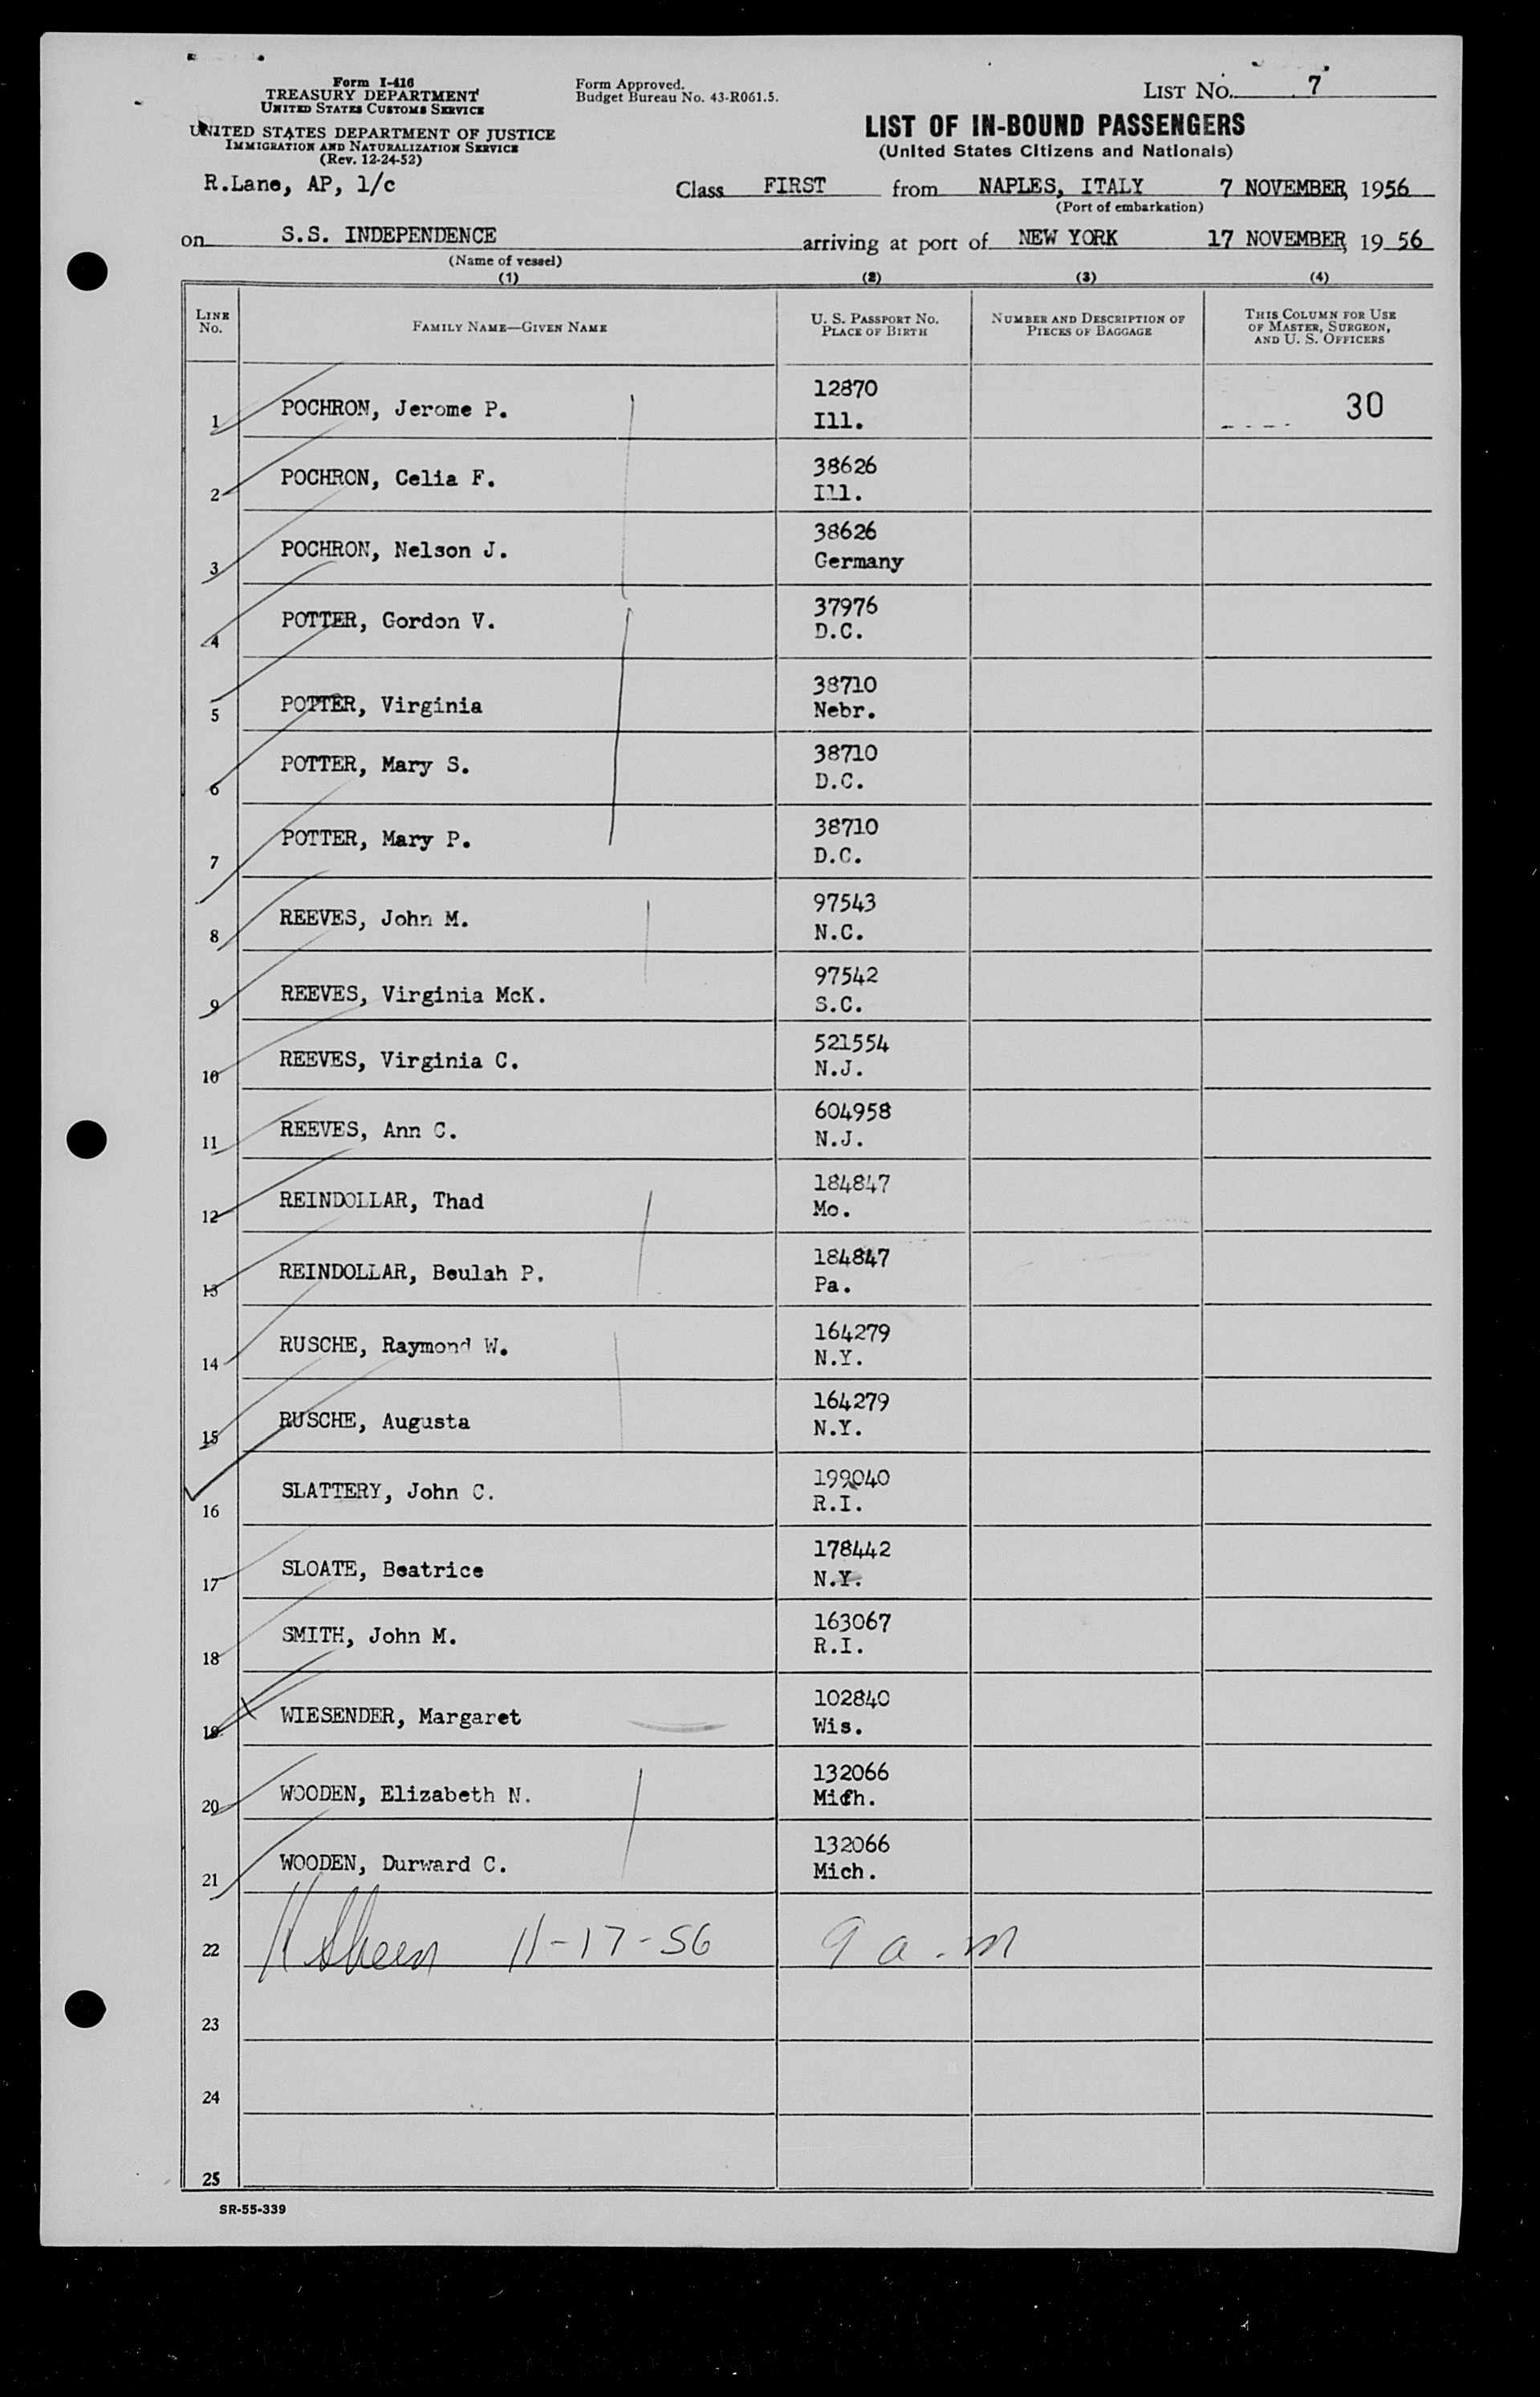 Form I-416
TREASURY DEPARTMENT
UNITED STATES CUSTOMS SERVICE
UNITED STATES DEPARTMENT OF JUSTICE
IMMIGRATION AND NATURALIZATION SERVICE
(Rev. 12-24-52)
Form Approved.
Budget Bureau No. 43-R061.5.
LIST NO. 7
LIST OF IN-BOUND PASSENGERS
(United States Citizens and Nationals)
R.Lane, AP, 1/c
Class FIRST from NAPLES, ITALY 7 NOVEMBER, 1956
(Port of embarkation)
on S.S. INDEPENDENCE arriving at port of NEW YORK 17 NOVEMBER, 19 56
(Name of vessel)
(1) (2) (3) (4)
LINE No. FAMILY NAME—GIVEN NAME U. S. PASSPORT NO. PLACE OF BIRTH NUMBER AND DESCRIPTION OF PIECES OF BAGGAGE THIS COLUMN FOR USE OF MASTER, SURGEON, AND U. S. OFFICERS
1 POCHRON, Jerome P. 12870 Ill. 30
2 POCHRON, Celia F. 38626 Ill.
3 POCHRON, Nelson J. 38626 Germany
4 POTTER, Gordon V. 37976 D.C.
5 POTTER, Virginia 38710 Nebr.
6 POTTER, Mary S. 38710 D.C.
7 POTTER, Mary P. 38710 D.C.
8 REEVES, John M. 97543 N.C.
9 REEVES, Virginia McK. 97542 S.C.
10 REEVES, Virginia C. 521554 N.J.
11 REEVES, Ann C. 604958 N.J.
12 REINDOLLAR, Thad 184847 Mo.
13 REINDOLLAR, Beulah P. 184847 Pa.
14 RUSCHE, Raymond W. 164279 N.Y.
15 RUSCHE, Augusta 164279 N.Y.
16 SLATTERY, John C. 199040 R.I.
17 SLOATE, Beatrice 178442 N.Y.
18 SMITH, John M. 163067 R.I.
19 WIESENDER, Margaret 102840 Wis.
20 WOODEN, Elizabeth N. 132066 Mich.
21 WOODEN, Durward C. 132066 Mich.
22 11-17-56 9 a.m
23
24
25
SR-55-339